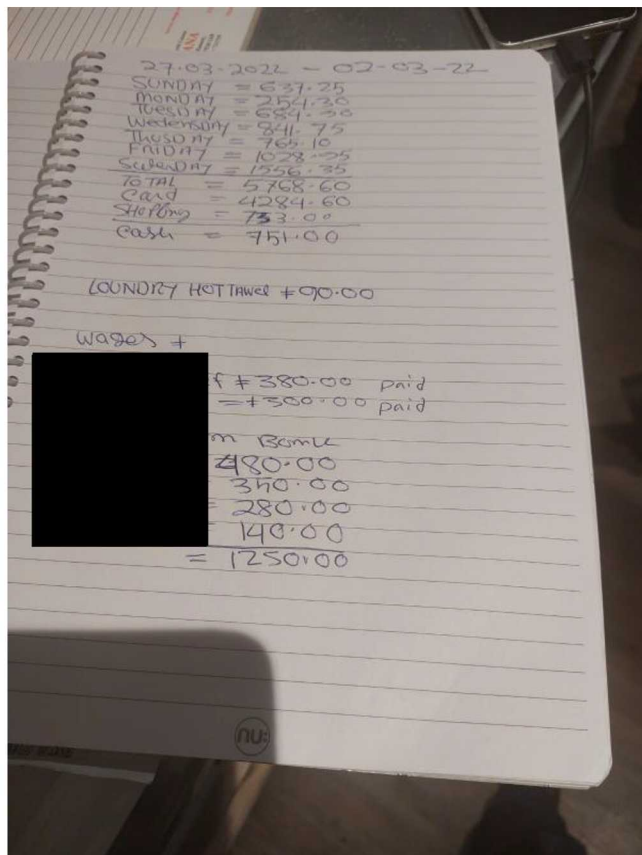 27.03-2022 - 02-03-22
SUNDAY = 637.25
MONDAY = 254.30
TUESDAY = 684.50
WedensDAY = 841.75
THUSDAY = 765.10
FRIDAY = 1028.25
SuterDAY = 1556.35
TOTAL = 5768.60
Card = 4284.60
SHopping = 733.00
Cash = 751.00
LOUNDRY HOT TAWEL £90.00
Wages £
£380.00 paid
= £300.00 paid
Bank
480.00
350.00
= 280.00
= 140.00
= 1250.00
nu: